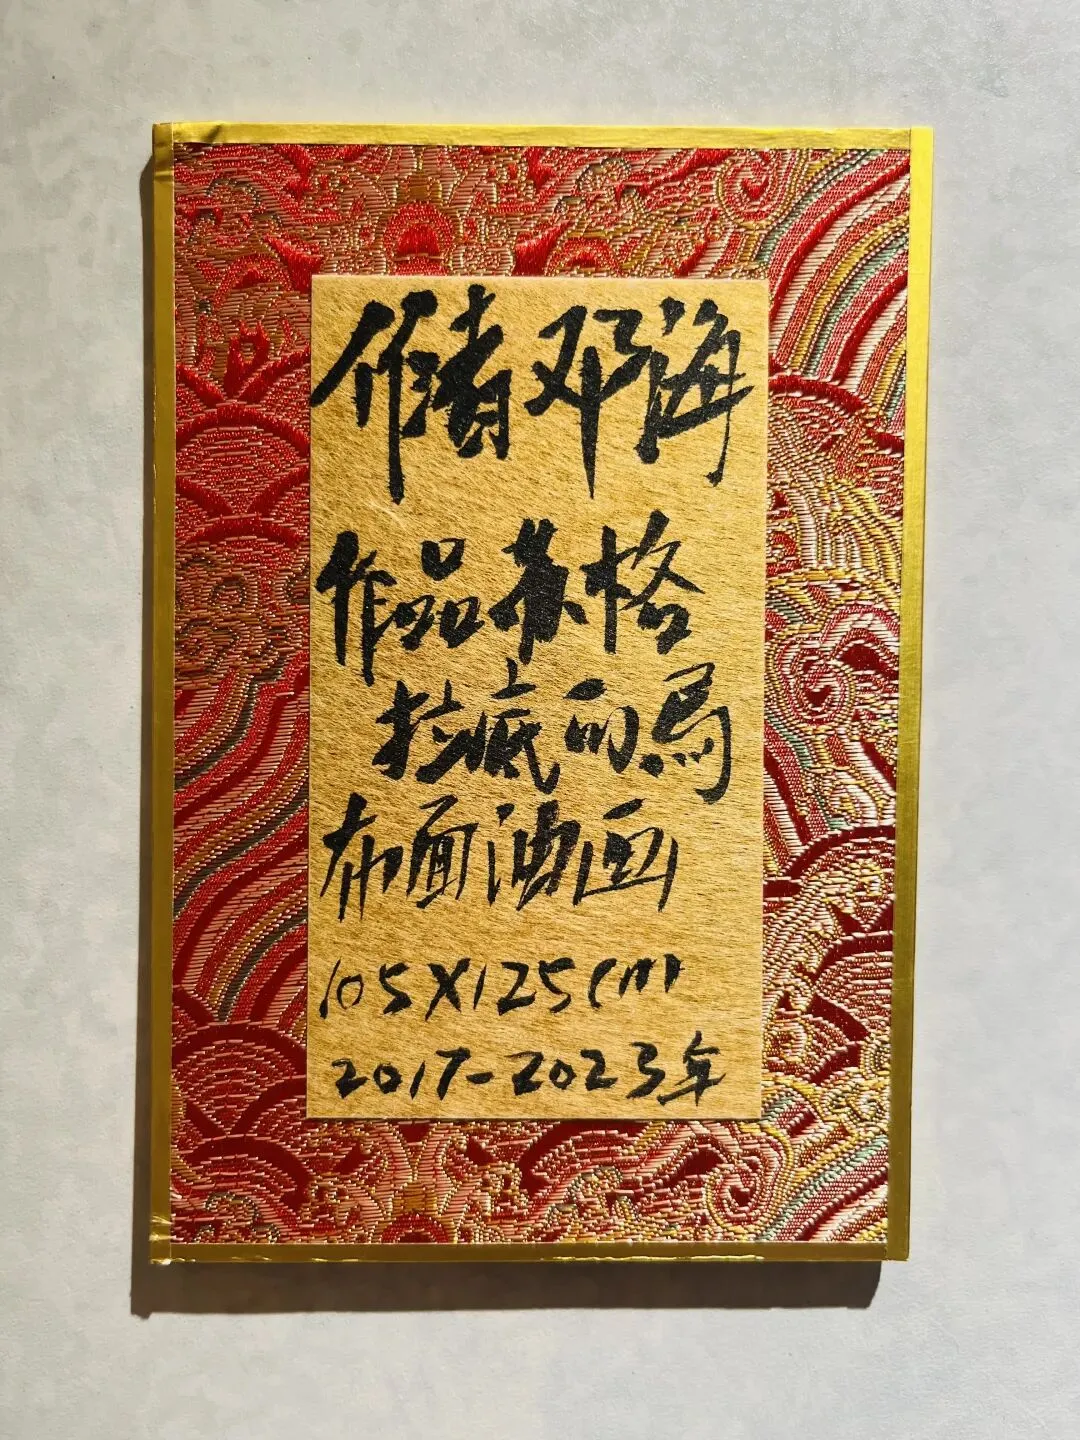 作者邓海
作品苏格
拉底的馬
布面油画
105X125cm
2017-2023年